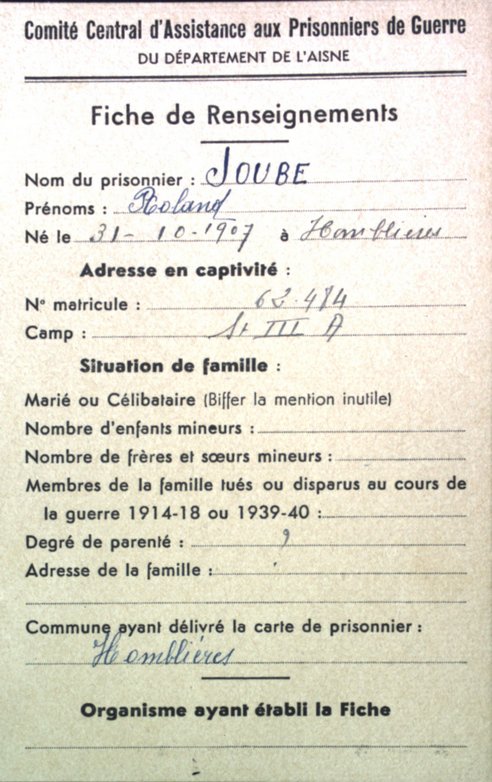 Comité Central d'Assistance aux Prisonniers de Guerre
DU DÉPARTEMENT DE L'AISNE
Fiche de Renseignements
Nom du prisonnier : JOUBE
Prénoms : Roland
Né le 31-10-1907 à Homblieres
Adresse en captivité :
N° matricule : 62.484
Camp : St III A
Situation de famille :
Marié ou Célibataire (Biffer la mention inutile)
Nombre d'enfants mineurs :
Nombre de frères et sœurs mineurs :
Membres de la famille tués ou disparus au cours de
la guerre 1914-18 ou 1939-40 :
Degré de parenté :
Adresse de la famille :
Commune ayant délivré la carte de prisonnier :
Homblières
Organisme ayant établi la Fiche